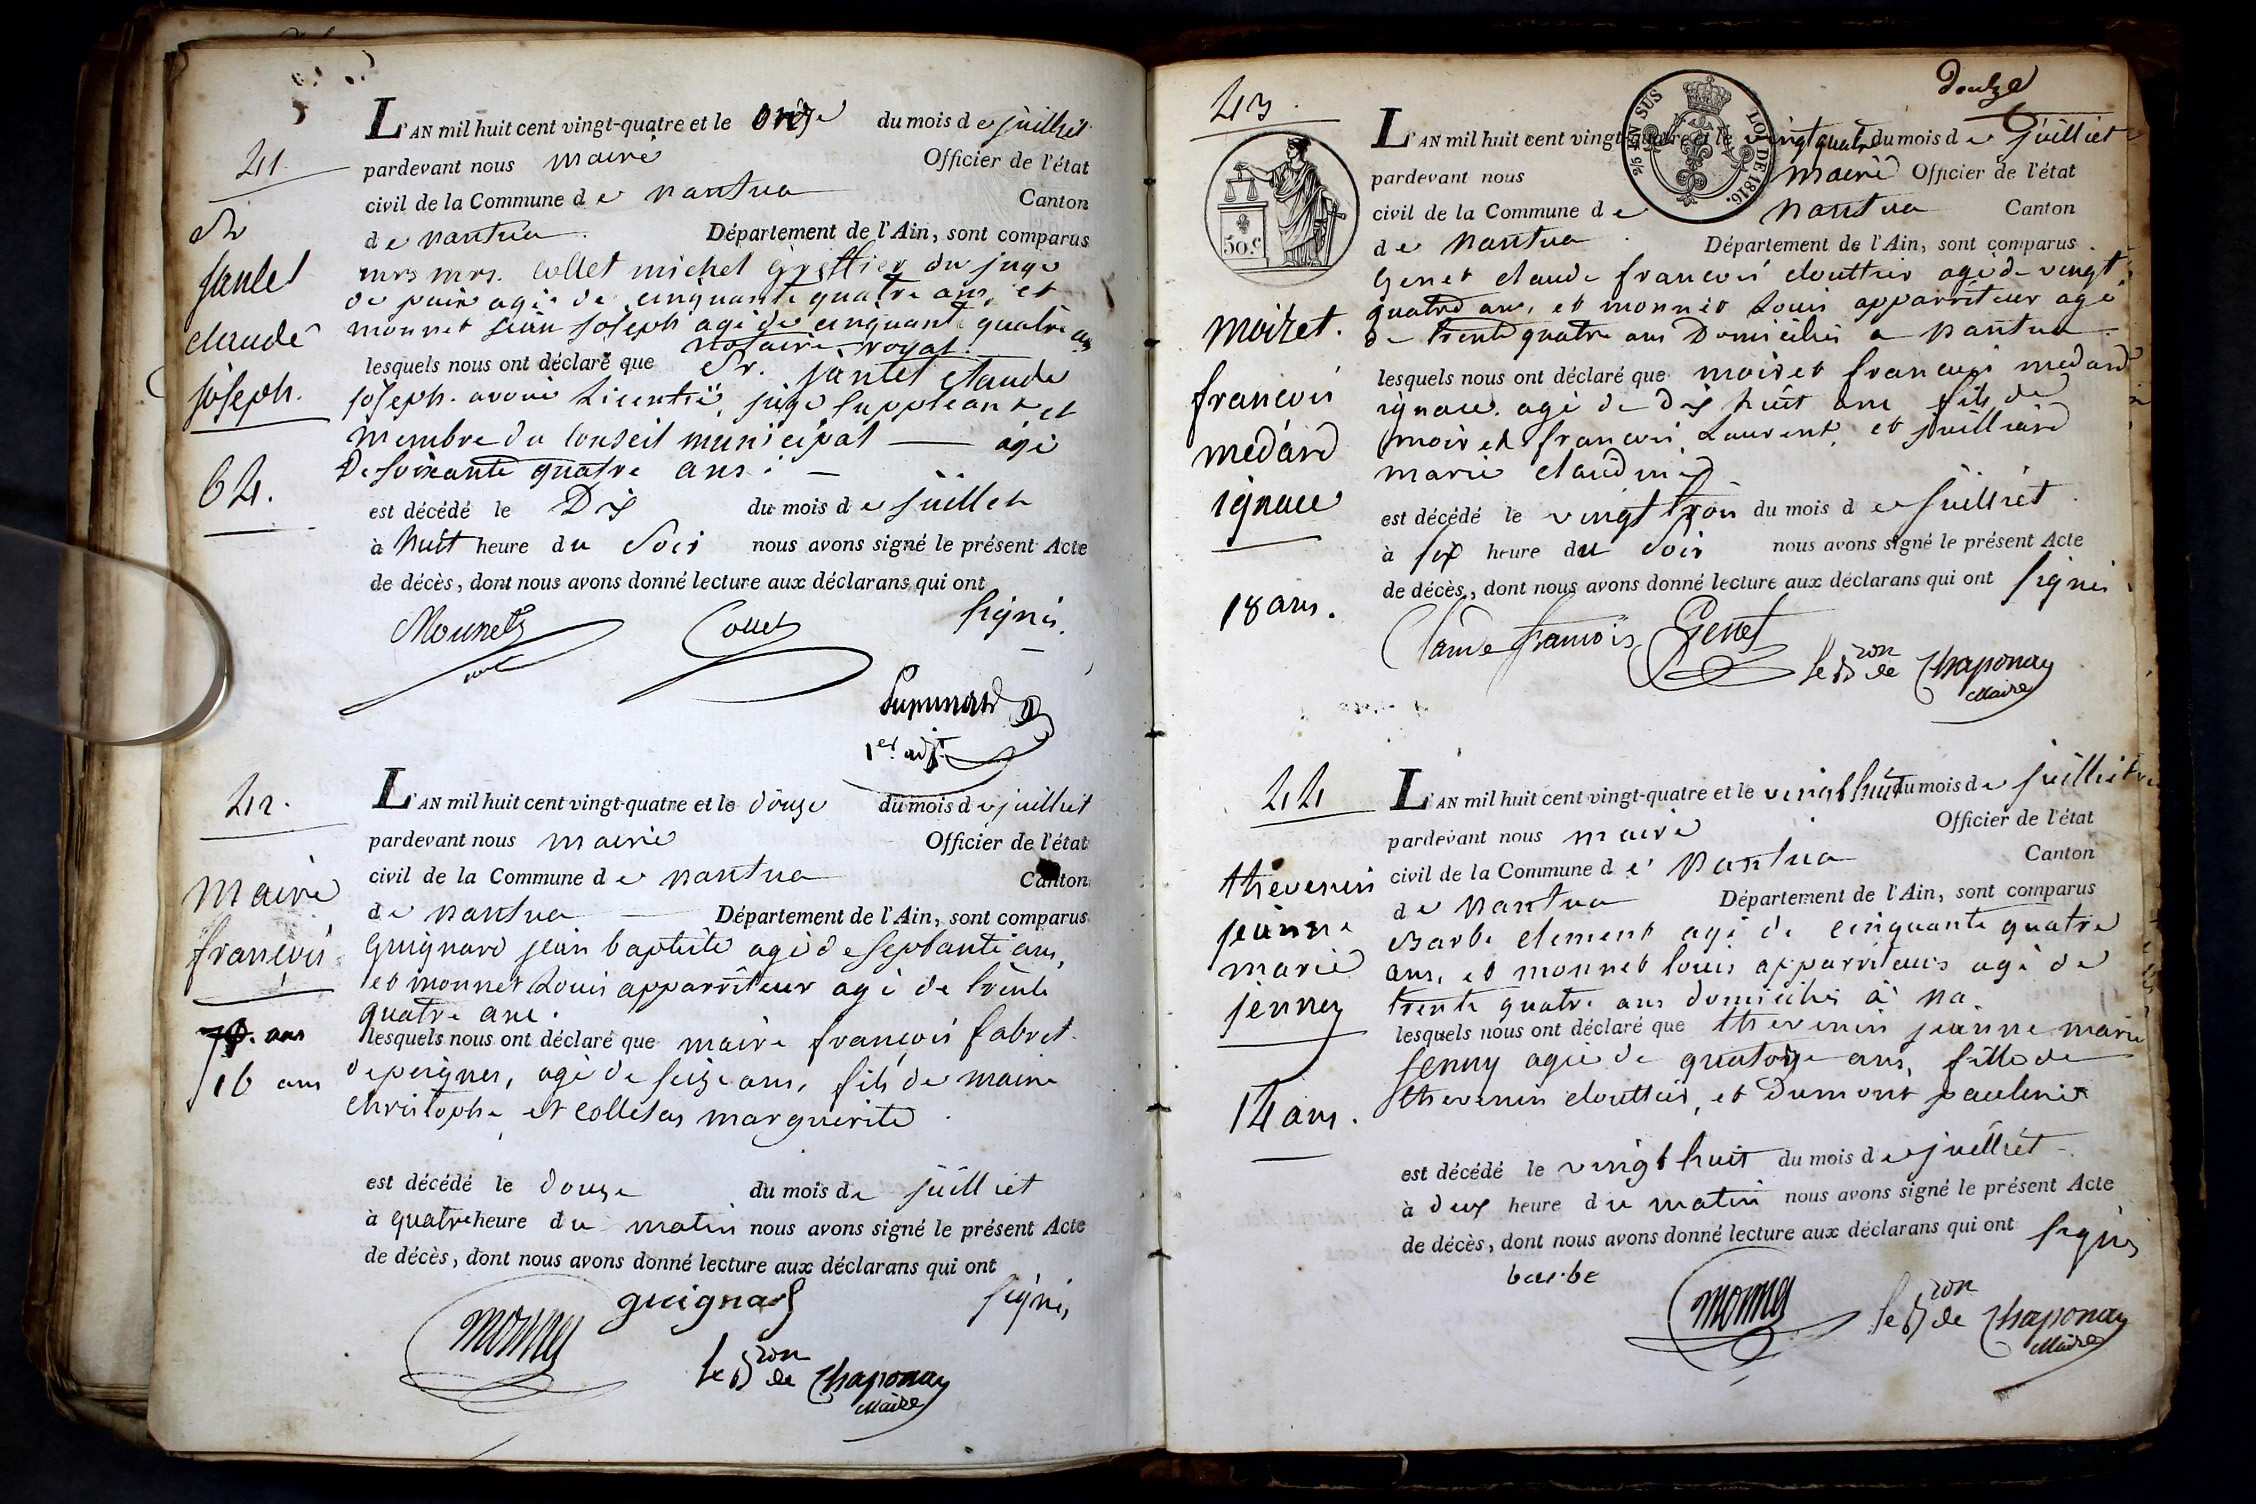 41.
Sr
jantet
claude
joseph.
64.
L'AN mil huit cent vingt-quatre et le onze du mois de juilliet
pardevant nous maire Officier de l'état
civil de la Commune de nantua Canton
de nantua. Département de l'Ain, sont comparus
mrs mrs. collet michel greffier du juge
de paix agé de cinquante quatre ans, et
monnet jean joseph agé de cinquante quatre ans
notaire royal.
lesquels nous ont déclaré que Sr. jantet claude
joseph. avoué Licentié, juge suppleant et
membre du Conseil municipal agé
De soixante quatre ans.
est décédé le Dix du mois de juillet
à huit heure du Soir nous avons signé le présent Acte
de décès, dont nous avons donné lecture aux déclarans qui ont
signés.
Mounet Collet
1er adjt
42.
maire
françois
16 ans
L'AN mil huit cent vingt-quatre et le douze du mois de juilliet
pardevant nous maire Officier de l'état
civil de la Commune de nantua Canton
de nantua Département de l'Ain, sont comparus
Guignard jean baptiste agé de septante ans,
et monnet Louis apparriteur agé de trente
quatre ans.
lesquels nous ont déclaré que maire françois fabret
depeignes, agé de seize ans, fils de maire
christophe et colletas marguerite
est décédé le douze du mois de juilliet
à quatre heure du matin nous avons signé le présent Acte
de décès, dont nous avons donné lecture aux déclarans qui ont
signés
guignard
monnet
le Bron de Chaponay
Maire
douze
43.
25 EN SUS
LOI DE 1816.
50.c
moiret.
francois
medard
ignace
18 ans.
L'AN mil huit cent vingt-quatre et le vingt quatre du mois de juilliet
pardevant nous maire Officier de l'état
civil de la Commune de nantua Canton
de nantua. Département de l'Ain, sont comparus
Genet claude francois clouttier agé de vingt
quatre ans, et monnet Louis apparriteur agé
de trente quatre ans Domiciliés a nantua
lesquels nous ont déclaré que moiret francois medard
ignace. agé de dix huit ans fils de
moiret francois Laurent, et juilliard
marie claudine
est décédé le vingt trois du mois de juilliet
à six heure du Soir nous avons signé le présent Acte
de décès, dont nous avons donné lecture aux déclarans qui ont signés
Claude francois Genet
le Bron de Chaponay
Maire
44
thevenin
jeanne
marie
jenny
14 ans.
L'AN mil huit cent vingt-quatre et le vingt huit du mois de juilliet
pardevant nous maire Officier de l'état
civil de la Commune de nantua Canton
de nantua Département de l'Ain, sont comparus
Barbe clement agé de cinquante quatre
ans, et monnet louis apparriteur agé de
trente quatre ans domiciliés à na.
lesquels nous ont déclaré que thevenin jeanne marie
jenny agée de quatorze ans, fille de
thevenin clouttier, et Dumont pauline
est décédé le vingt huit du mois de juilliet
à deux heure du matin nous avons signé le présent Acte
de décès, dont nous avons donné lecture aux déclarans qui ont signés
barbe
monnet
le Bron de Chaponay
Maire